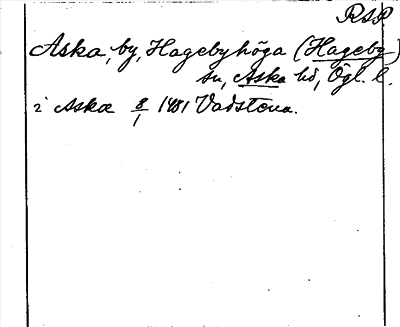 RSP
Aska, by, Hagebyhöga (Hageby)
sn, Aska hd, Ögl. l.
i Aska 8/1 1481 Vadstena.